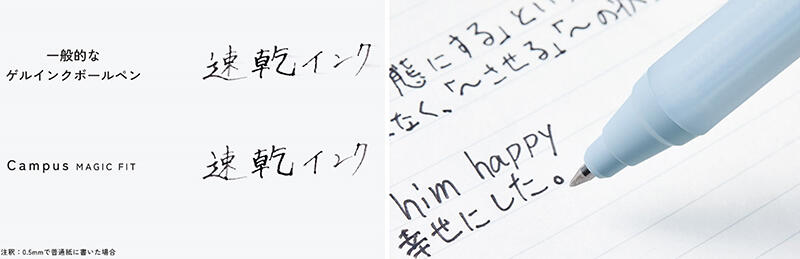 一般的な
ゲルインクボールペン
速乾インク
Campus MAGIC FIT
速乾インク
注釈：0.5mmで普通紙に書いた場合
態にする」とい
「〜させる」「〜の状
なく、
him happy
幸せにした。